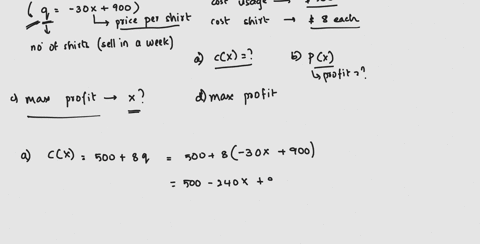 cost usage →
( q = -30x + 900 )
↳ price per shirt
cost shirt → $ 8 each
no of shirts (sell in a week)
a) c(x) = ?
b) P(x)
↳ profit = ?
c) max profit → x?
d) max profit
a) C(x) = 500 + 8q = 500 + 8(-30x + 900)
= 500 - 240x +